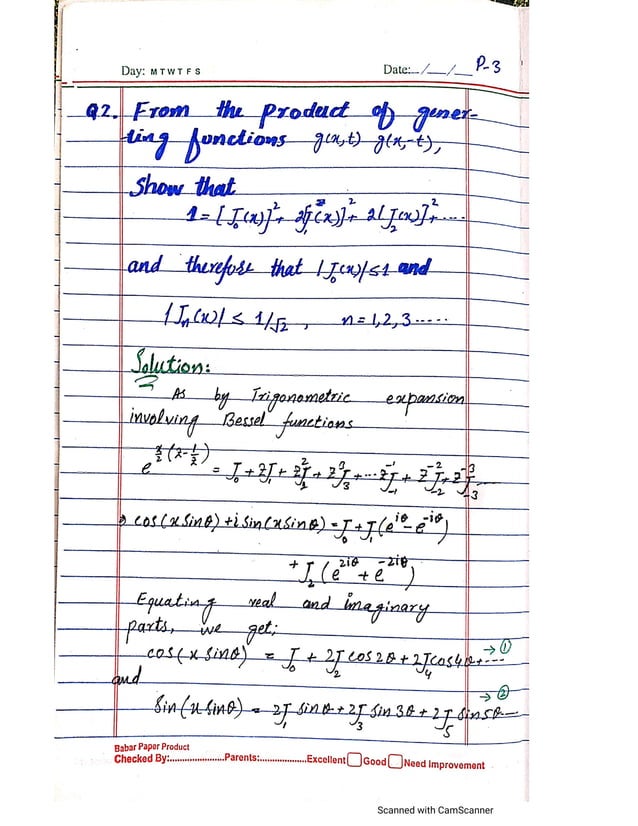 Day: M T W T F S Date:__/__/__ P-3
Q2. From the product of gener-
ting functions g(x,t) g(x,-t),
Show that
1 = [J₀(x)]² + 2[J₁(x)]² + 2[J₂(x)]² + ....
and therefore that |J₀(x)| ≤ 1 and
|Jₙ(x)| ≤ 1/√2 , n = 1,2,3 .....
Solution:
As by Trigonometric expansion
involving Bessel functions
e^{x/2 (z - 1/z)} = J₀ + zJ₁ + z²J₂ + z³J₃ + ... z⁻¹J₋₁ + z⁻²J₋₂ + z⁻³J₋₃ ...
⇒ cos(x sinθ) + i sin(x sinθ) = J₀ + J₁(e^{iθ} - e^{-iθ})
+ J₂(e^{2iθ} + e^{-2iθ})
Equating real and imaginary
parts, we get;
cos(x sinθ) = J₀ + 2J₂ cos2θ + 2J₄ cos4θ + ... → ①
and
Sin(x sinθ) = 2J₁ sinθ + 2J₃ sin3θ + 2J₅ sin5θ — → ②
Babar Paper Product
Checked By:....................Parents:.................Excellent Good Need Improvement
Scanned with CamScanner